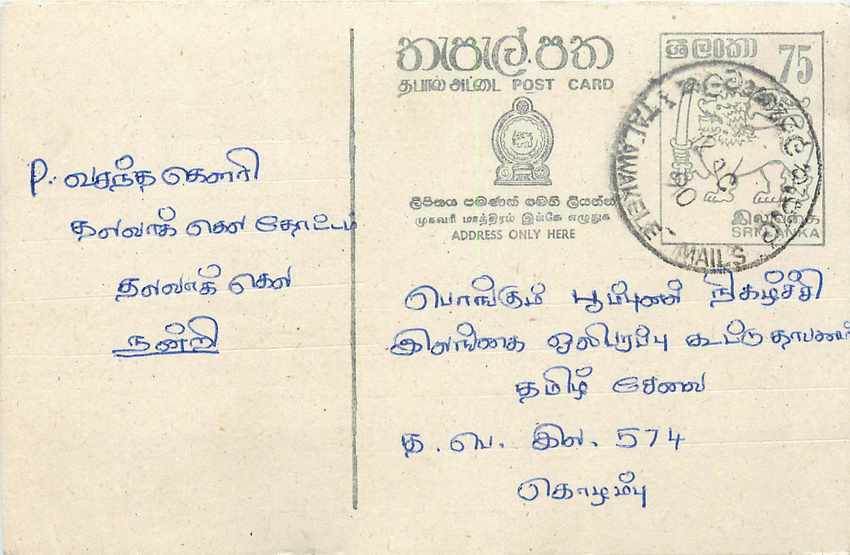 P. வசந்த கௌரி
தலவாக் கெலே தோட்டம்
தலவாக் கெலே
நன்றி
තැපැල්පත
தபால் அட்டை POST CARD
ලිපිනය පමණක් මෙහි ලියන්න
முகவரி மாத்திரம் இங்கே எழுதுக
ADDRESS ONLY HERE
ශ්‍රී ලංකා
75
இலங்கை
SRI LANKA
TALAWAKELE MAILS
பொங்கும் பூம்புனல் நிகழ்ச்சி
இலங்கை ஒலிபரப்பு கூட்டுதாபனம்
தமிழ் சேவை
த. பெ. இல. 574
கொழம்பு